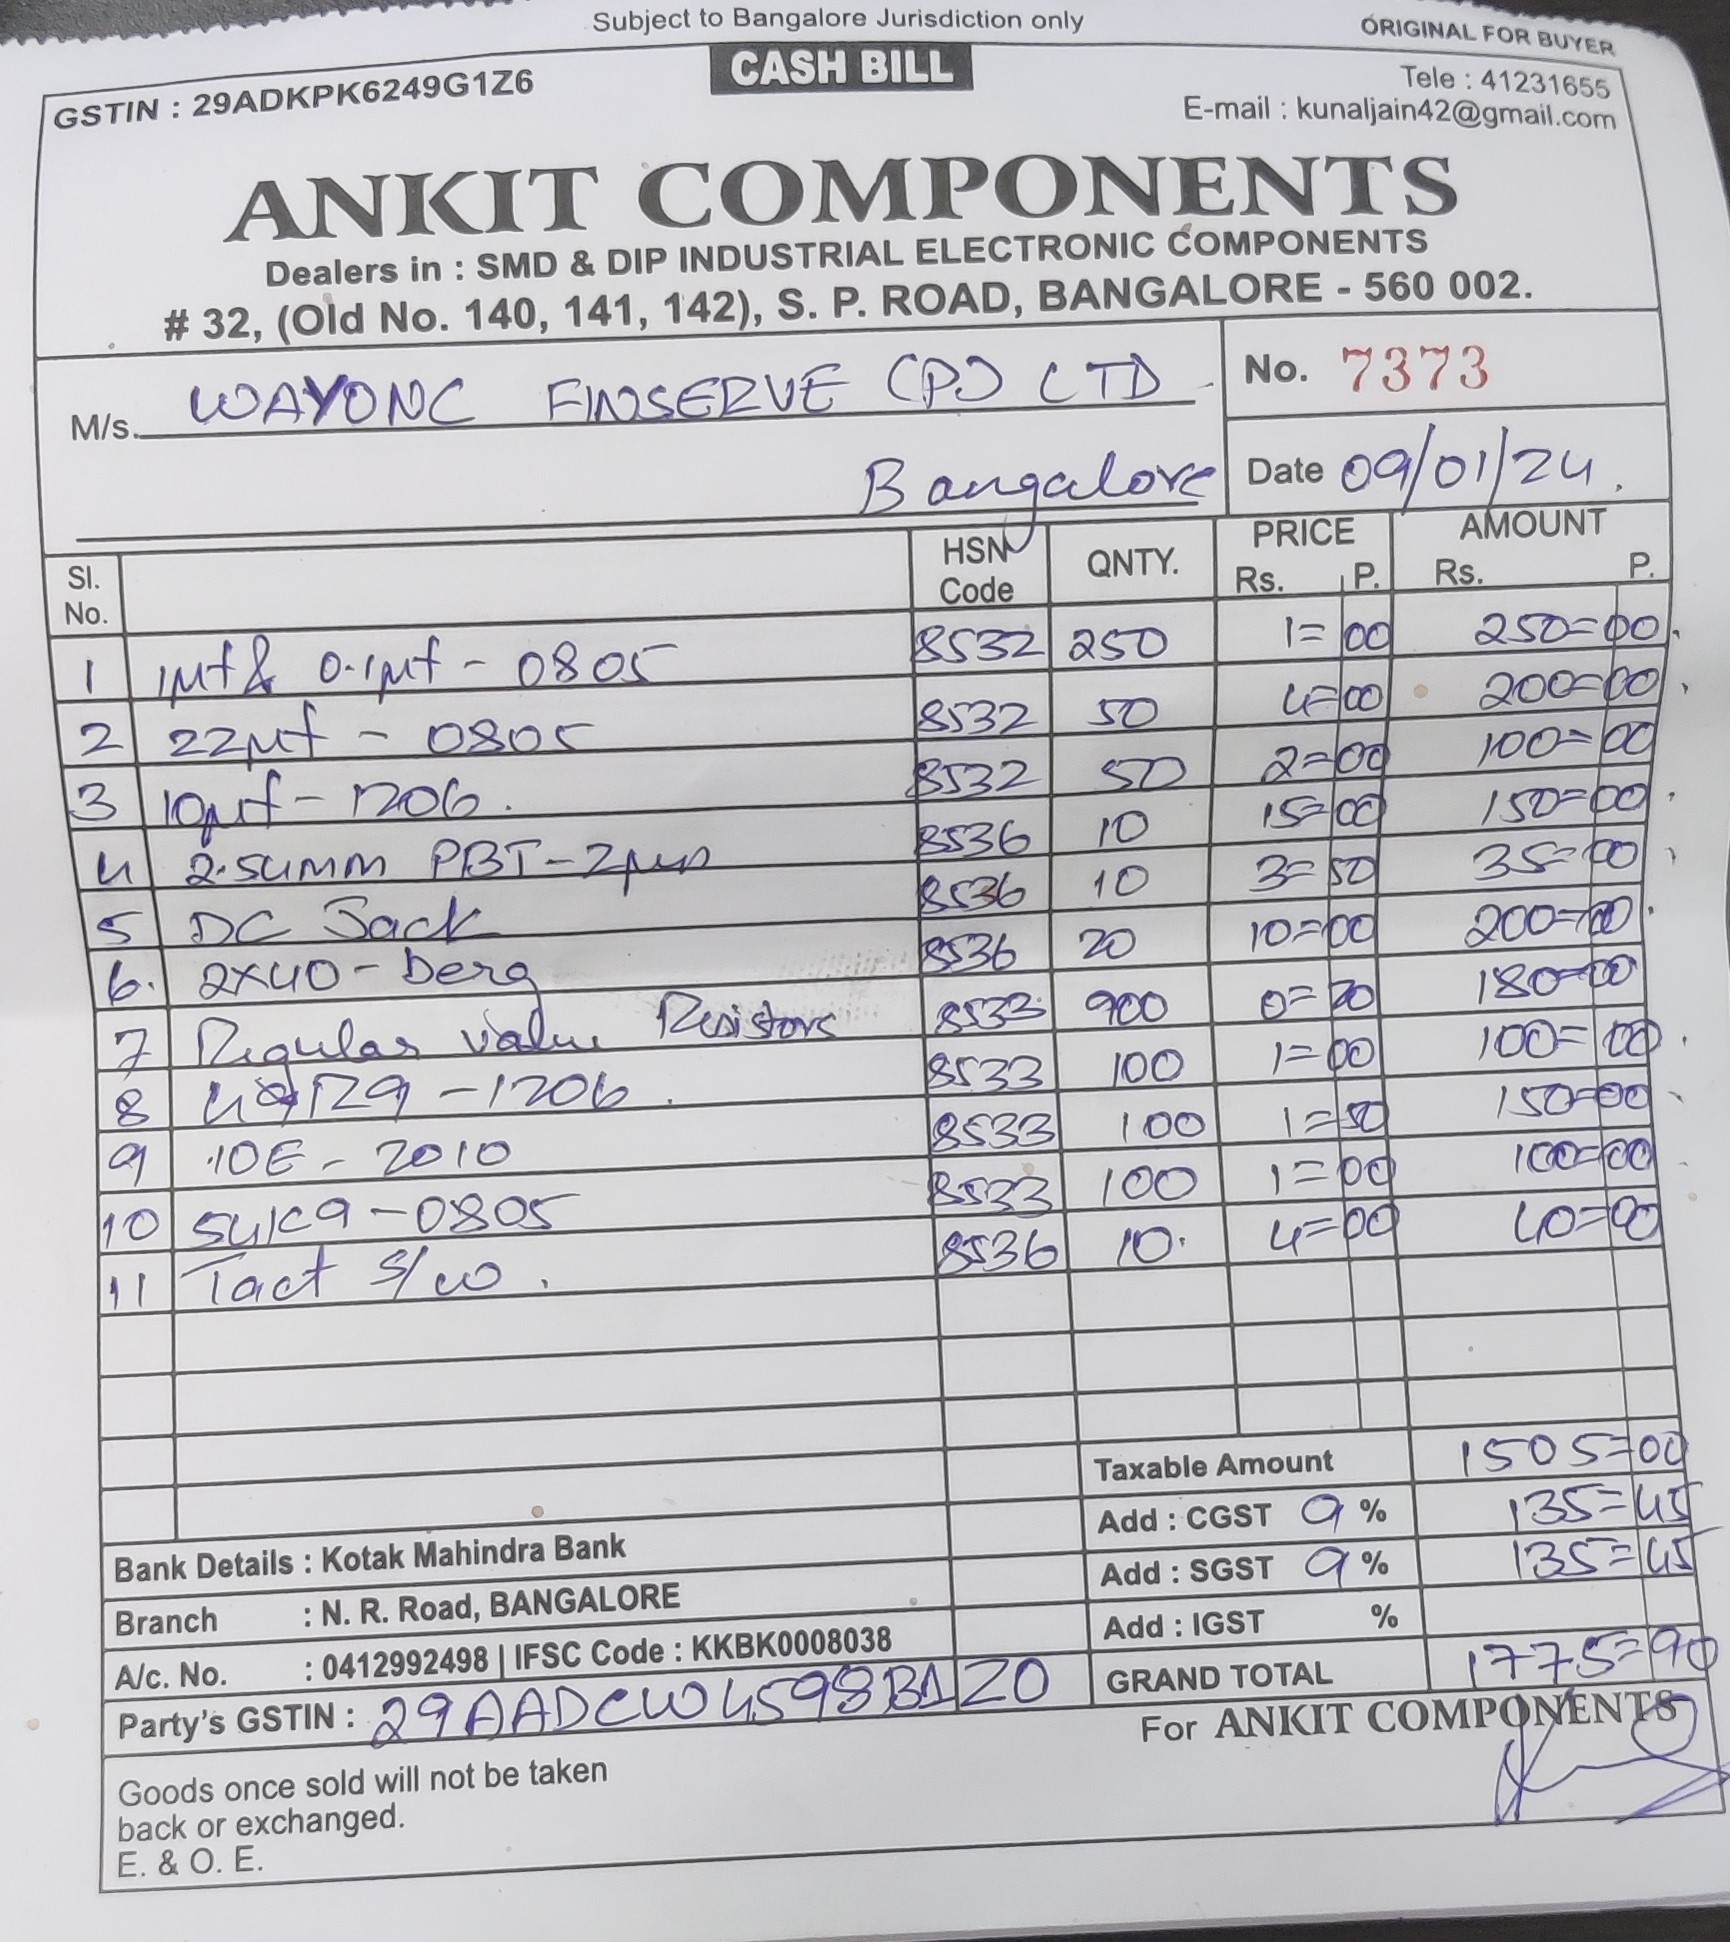 Subject to Bangalore Jurisdiction only
ORIGINAL FOR BUYER
GSTIN : 29ADKPK6249G1Z6
CASH BILL
Tele : 41231655
E-mail : kunaljain42@gmail.com
ANKIT COMPONENTS
Dealers in : SMD & DIP INDUSTRIAL ELECTRONIC COMPONENTS
# 32, (Old No. 140, 141, 142), S. P. ROAD, BANGALORE - 560 002.
M/s. WAYONC FINSERVE (P) LTD
No. 7373
Bangalore
Date 09/01/24
Sl. No. HSN Code QNTY. PRICE Rs. P. AMOUNT Rs. P.
1 1Mf & 0.1Mf - 0805 8532 250 1=00 250=00
2 22Mf - 0805 8532 50 4=00 200=00
3 10Mf - 1206. 8532 50 2=00 100=00
4 2.54MM PBT - 2pin 8536 10 15=00 150=00
5 DC Jack 8536 10 3=50 35=00
6. 2X40 - Berg 8536 20 10=00 200=00
7 Regular value Resistors 8533 900 0=20 180=00
8 - 1206. 8533 100 1=00 100=00
9 10E - 2010 8533 100 1=50 150=00
10 - 0805 8533 100 1=00 100=00
11 Tact S/w. 8536 10. 4=00 40=00
Taxable Amount 1505=00
Add : CGST 9 % 135=45
Add : SGST 9 % 135=45
Add : IGST %
GRAND TOTAL 1775=90
Bank Details : Kotak Mahindra Bank
Branch : N. R. Road, BANGALORE
A/c. No. : 0412992498 | IFSC Code : KKBK0008038
Party's GSTIN : 29AADCW4598B1Z0
For ANKIT COMPONENTS
Goods once sold will not be taken
back or exchanged.
E. & O. E.